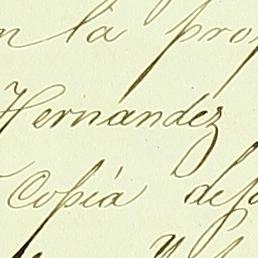 n la pro
Hernandez
Copia de